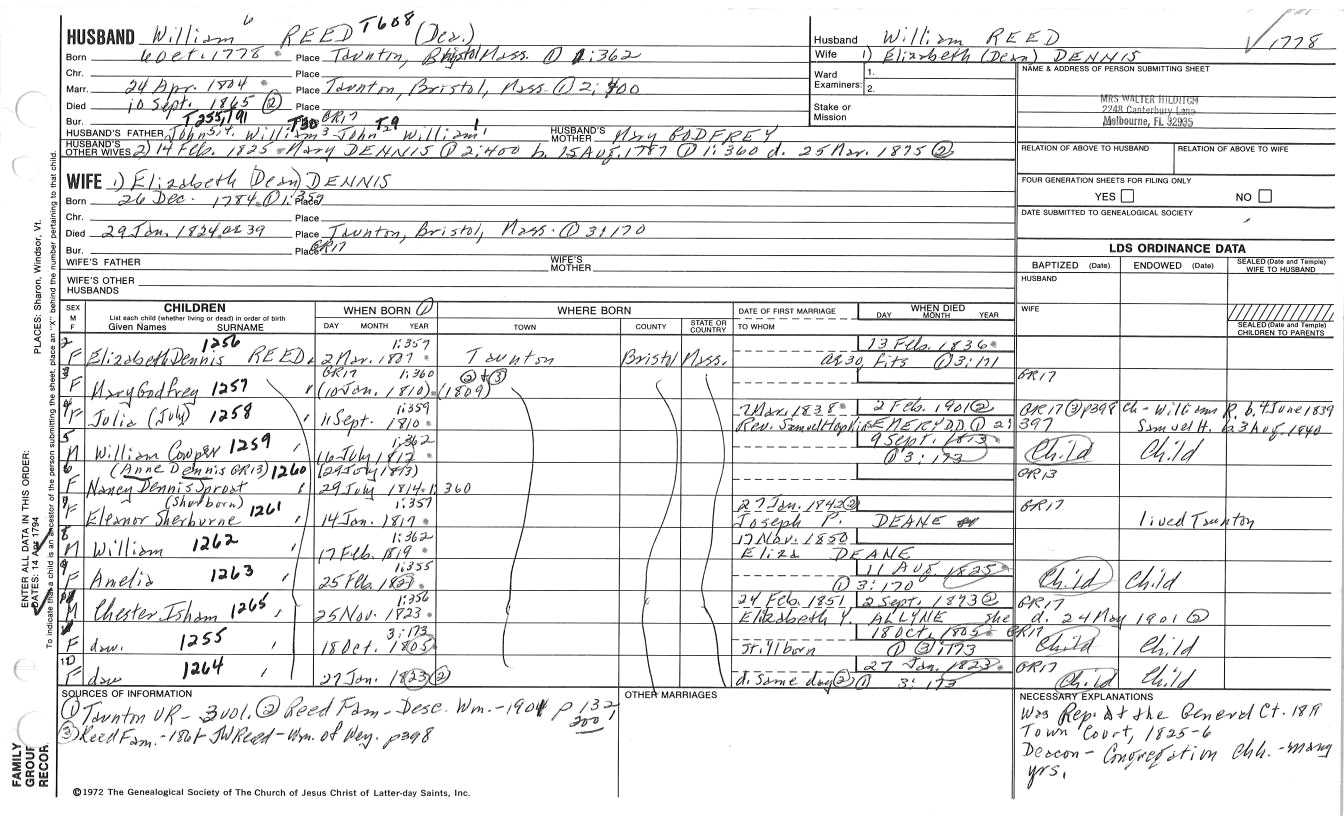 HUSBAND William 6 REED T608 (Dea.)
Born 6 Oct. 1778 Place Taunton, Bristol Mass. ① 1:362
Chr. Place
Marr. 24 Apr. 1804 Place Taunton, Bristol, Mass. ① 2:400
Died 10 Sept. 1865 ② Place
Bur. T255, T91 Place GR17
HUSBAND'S FATHER John 5,4, William 3 T30 John 2 T9 William 1 HUSBAND'S MOTHER Mary GODFREY
HUSBAND'S OTHER WIVES 2) 14 Feb. 1825 Mary DENNIS ① 2:400 b. 15 Aug. 1787 ① 1:360 d. 25 Mar. 1875 ②
WIFE 1) Elizabeth (Dean) DENNIS
Born 26 Dec. 1784 ① 1:359 Place
Chr. Place
Died 29 Jan. 1824 ae 39 Place Taunton, Bristol, Mass. ① 3:170
Bur. Place GR17
WIFE'S FATHER WIFE'S MOTHER
WIFE'S OTHER HUSBANDS
Husband William REED
Wife 1) Elizabeth (Dean) DENNIS
√ 1778
Ward Examiners: 1. 2.
Stake or Mission
NAME & ADDRESS OF PERSON SUBMITTING SHEET
MRS WALTER HILDITCH
2248 Canterbury Lane
Melbourne, FL 32935
RELATION OF ABOVE TO HUSBAND RELATION OF ABOVE TO WIFE
FOUR GENERATION SHEETS FOR FILING ONLY
YES NO
DATE SUBMITTED TO GENEALOGICAL SOCIETY
LDS ORDINANCE DATA
BAPTIZED (Date) ENDOWED (Date) SEALED (Date and Temple) WIFE TO HUSBAND
HUSBAND
WIFE
SEALED (Date and Temple) CHILDREN TO PARENTS
SEX M F
CHILDREN
List each child (whether living or dead) in order of birth
Given Names SURNAME
WHEN BORN ①
DAY MONTH YEAR
WHERE BORN
TOWN COUNTY STATE OR COUNTRY
DATE OF FIRST MARRIAGE
TO WHOM
WHEN DIED
DAY MONTH YEAR
2 1256 1:357 13 Feb. 1836
F Elizabeth Dennis REED 2 Mar. 1807 Taunton Bristol Mass. ae 30, fits ① 3:171
3 GR17 1:360 ② + ③ GR17
F Mary Godfrey 1257 (10 Jan. 1810) (1809)
4 1:359 7 Mar. 1838 2 Feb. 1901 ② GR17 ③ p398 Ch - William R. b. 4 June 1839
F Julia (July) 1258 11 Sept. 1810 Rev. Samuel Hopkins EMERY DD ① 2:397 Samuel H. b. 3 Aug. 1840
5 1:362 9 Sept. 1813
M William Cowper 1259 16 July 1812 ① 3:173 Child Child
6 (Anne Dennis GR13) 1260 (29 July 1813) GR13
F Nancy Dennis Sproat 29 July 1814 1:360
7 (Sherborn) 1:357 27 Jan. 1842 ② GR17
F Eleanor Sherburne 1261 14 Jan. 1817 Joseph P. DEANE lived Taunton
8 1:362 17 Nov. 1850
M William 1262 17 Feb. 1819 Eliza DEANE
9 1:355 11 Aug. 1825
F Amelia 1263 25 Feb. 1821 ① 3:170 Child Child
1:356 24 Feb. 1851 2 Sept. 1893 ② GR17
M Chester Isham 1265 25 Nov. 1823 Elizabeth Y. ALLYNE she d. 24 May 1901 ②
3:173 18 Oct. 1805 GR17
F daw. 1255 18 Oct. 1805 Stillborn ① ③:173 Child Child
10 27 Jan. 1823 GR17
F daw 1264 27 Jan. 1823 ② d. same day ② ① 3:173 Child Child
SOURCES OF INFORMATION
① Taunton VR - 3 vol. ② Reed Fam - Desc. Wm. - 1901 p 132
200
③ Reed Fam. - 1861 JW Reed - Wm. of Wey. p398
OTHER MARRIAGES
NECESSARY EXPLANATIONS
Was Rep. at the General Ct. 1819
Town Court, 1825-6
Deacon - Congregation Chh. - many
yrs.
©1972 The Genealogical Society of The Church of Jesus Christ of Latter-day Saints, Inc.
FAMILY GROUP RECOR
ENTER ALL DATA IN THIS ORDER:
DATES: 14 Apr 1794
PLACES: Sharon, Windsor, Vt.
To indicate that a child is an ancestor of the person submitting the sheet, place an "X" behind the number pertaining to that child.